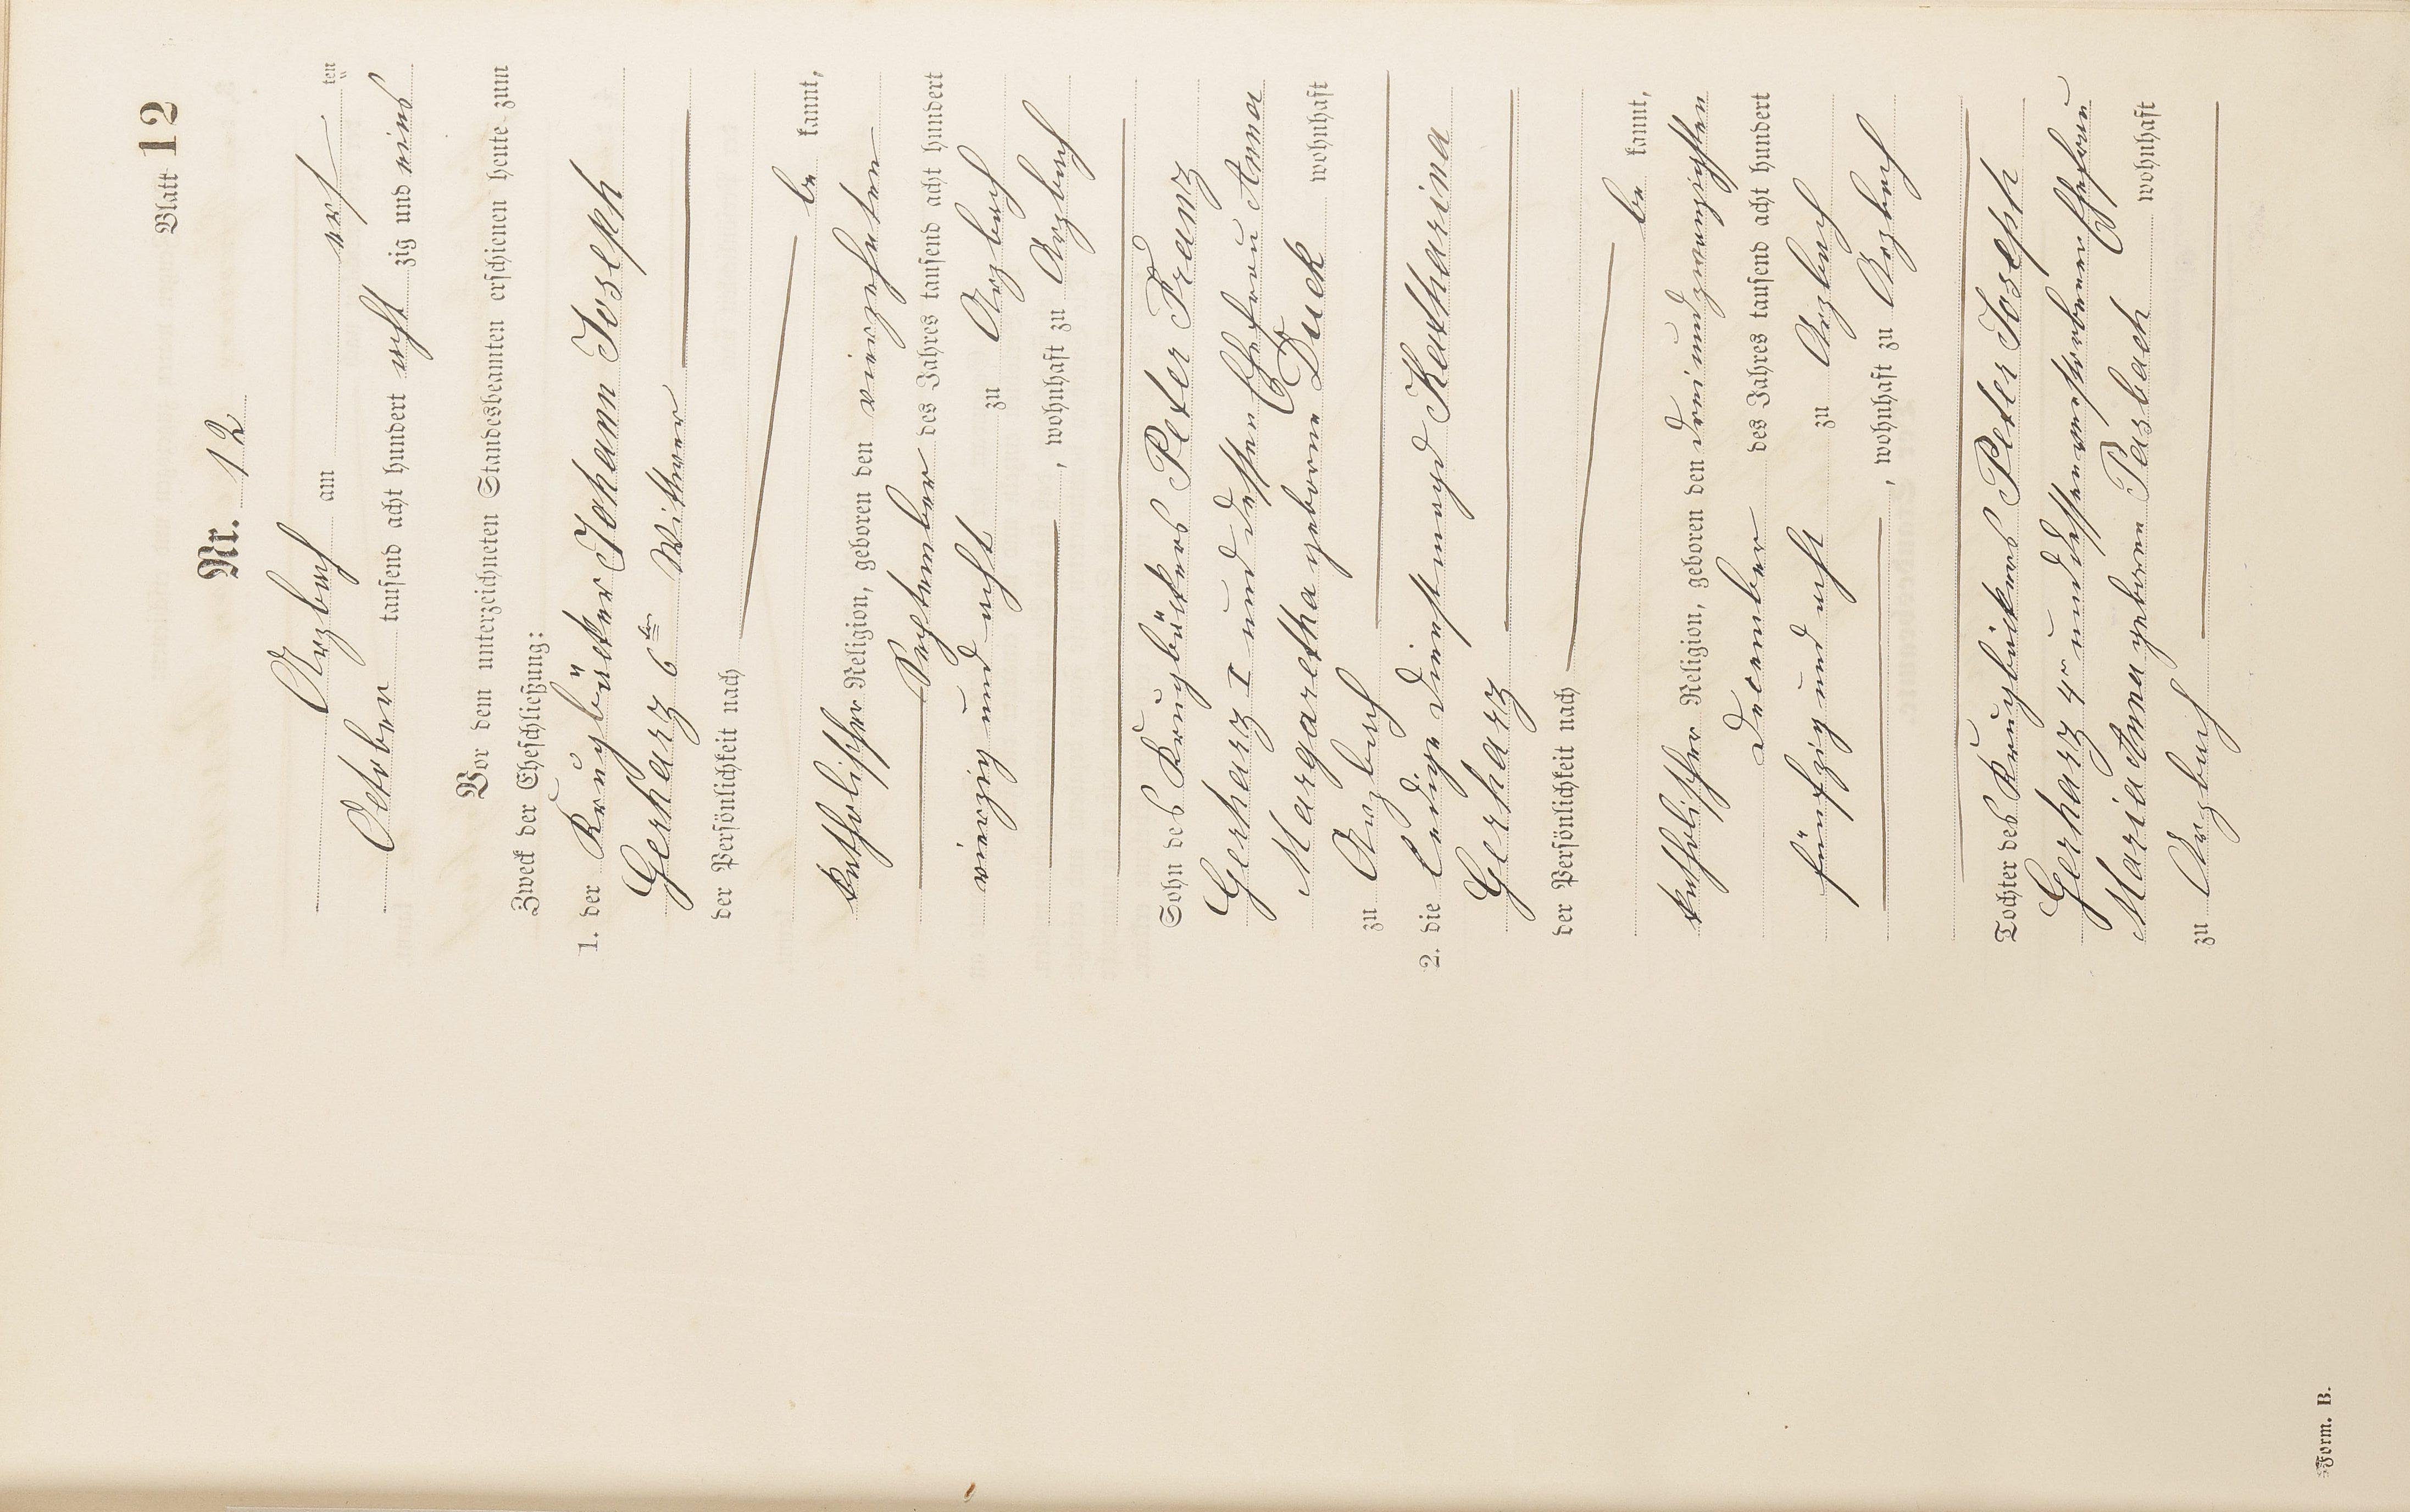 Blatt 12
Nr. 12
Arzbach am acht ten
October tausend acht hundert acht zig und eins
Vor dem unterzeichneten Standesbeamten erschienen heute zum
Zweck der Eheschließung:
1. der Krugbäcker Johann Joseph
Gerharz 6ter Wittwer
der Persönlichkeit nach
be kannt,
katholischer Religion, geboren den vierzehnten
September des Jahres tausend acht hundert
vierzig und acht zu Arzbach
, wohnhaft zu Arzbach
Sohn des Krugbäckers Peter Franz
Gerharz I und dessen Ehefrau Anna
Margaretha geborne Duck wohnhaft
zu Arzbach
2. die ledige Dienstmagd Katharina
Gerharz
der Persönlichkeit nach
be kannt,
katholischer Religion, geboren den dreiundzwanzigsten
December des Jahres tausend acht hundert
fünfzig und acht zu Arzbach
, wohnhaft zu Arzbach
Tochter des Krugbäckers Peter Joseph
Gerharz 4r und dessen verstorbenen Ehefrau
Maria Anna geborne Pasbach wohnhaft
zu Arzbach
Form. B.